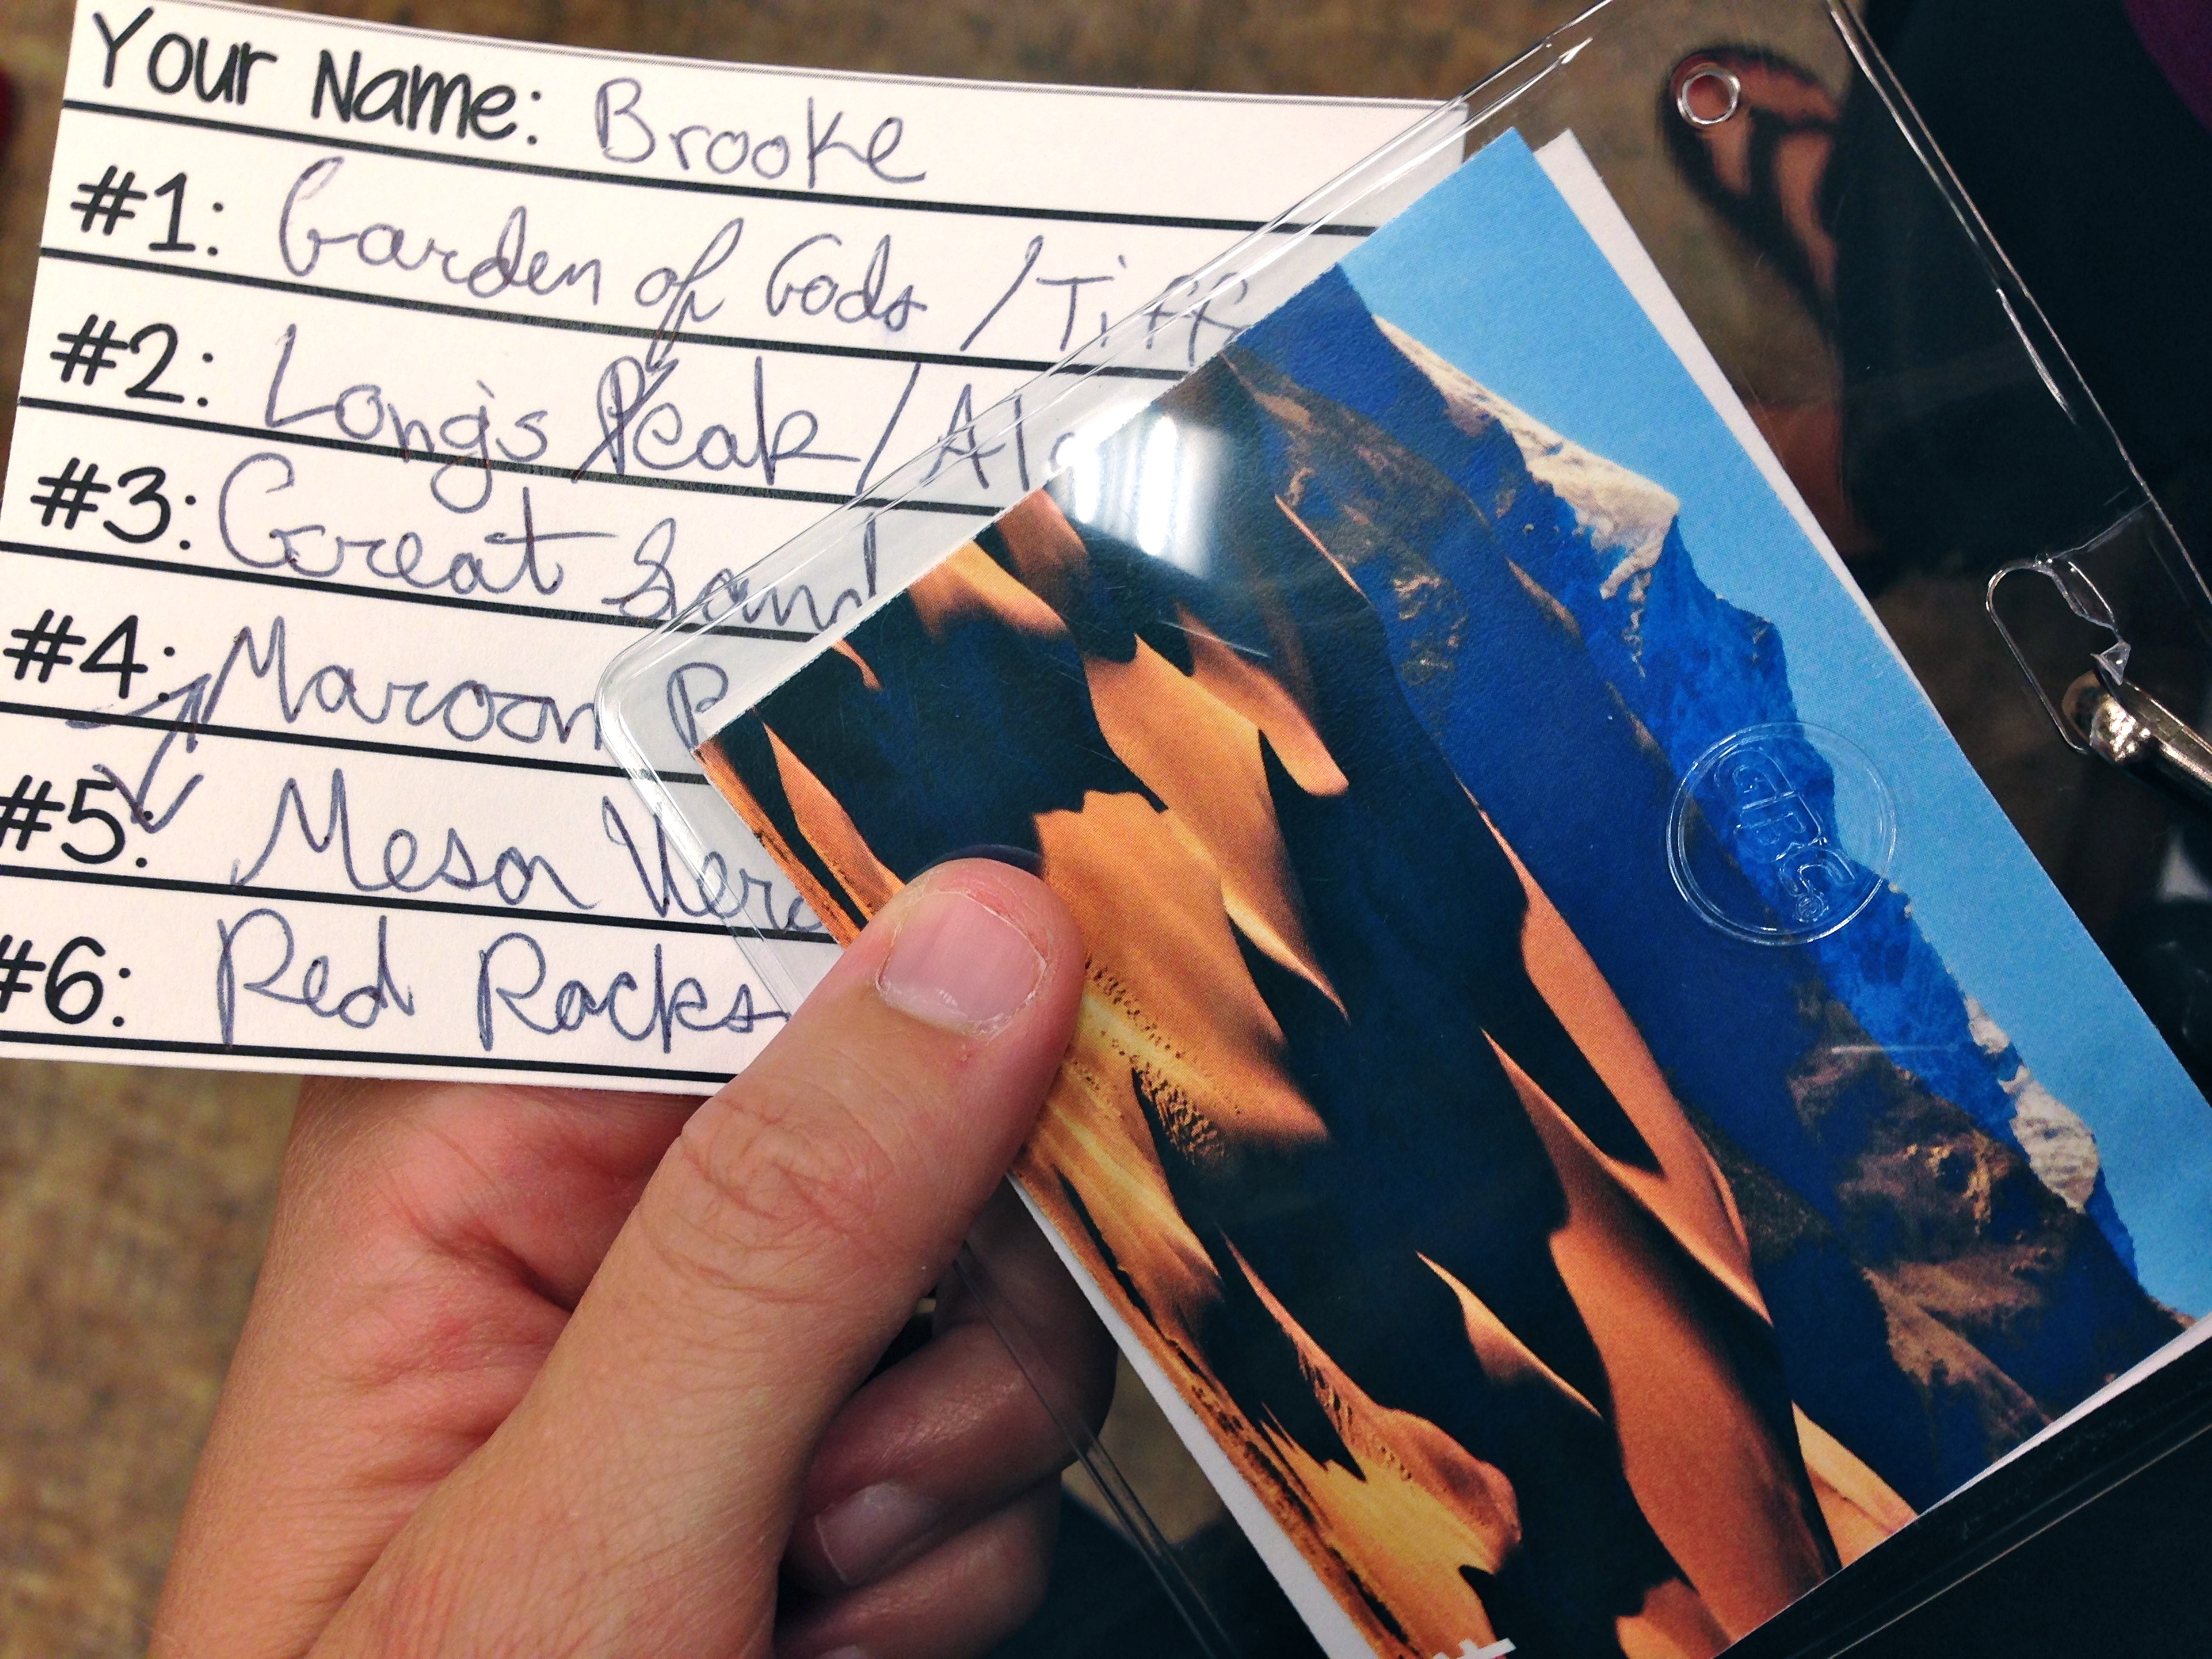 Your Name: Brooke
#1: Garden of Gods / Tiff
#2: Longs Peak /
#3: Great Sand
#4: Maroon
#5: Mesa Verde
#6: Red Rocks
GBC®